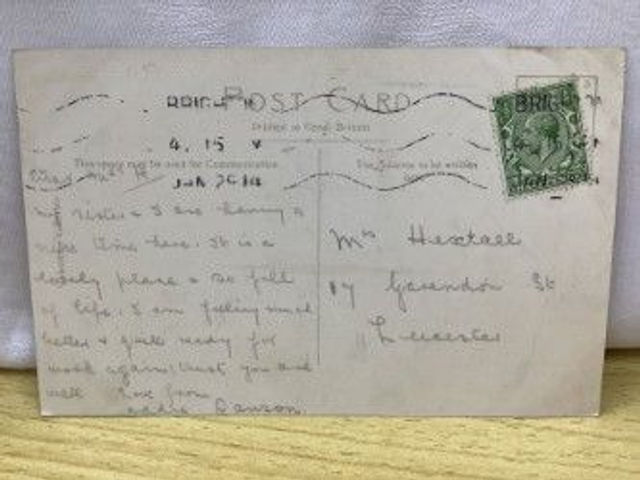 POST CARD
4. 15
Printed in Great Britain
This space may be used for Communication
The Address to be written
my sister & I are having a
nice time here. It is a
lovely place & so full
of life. I am feeling much
better & quite ready for
work again. trust you are
well love from
Dawson.
Mrs Hextall
Garendon St
Leicester